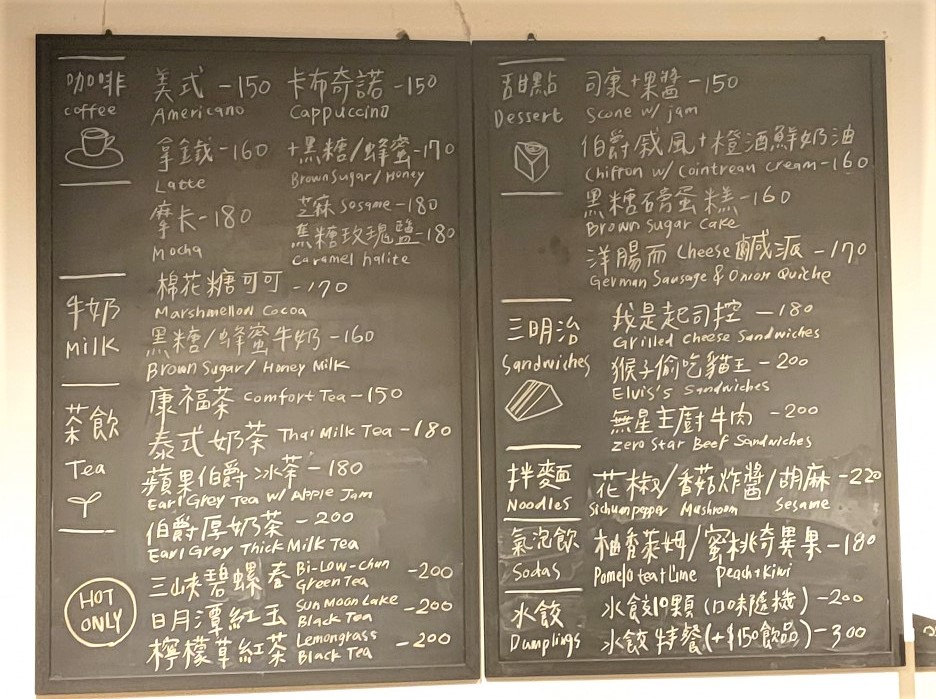 咖啡 美式 -150 卡布奇諾 -150
coffee Americano Cappuccino
拿鐵 -160 +黑糖/蜂蜜 -170
Latte Brown Sugar/Honey
摩卡 -180 芝麻 Sesame -180
Mocha 焦糖玫瑰鹽 -180
Caramel halite
牛奶 棉花糖可可 -170
Milk Marshmellow Cocoa
黑糖/蜂蜜牛奶 -160
Brown Sugar/Honey Milk
茶飲 康福茶 Comfort Tea -150
Tea 泰式奶茶 Thai Milk Tea -180
蘋果伯爵冰茶 -180
Earl Grey Tea w/ Apple Jam
伯爵厚奶茶 -200
Earl Grey Thick Milk Tea
HOT
ONLY
三峽碧螺春 Bi-Low-chun Green Tea -200
日月潭紅玉 Sun Moon Lake Black Tea -200
檸檬草紅茶 Lemongrass Black Tea -200
甜點 司康+果醬 -150
Dessert Scone w/ jam
伯爵戚風+橙酒鮮奶油
Chiffon w/ Cointreau cream -160
黑糖磅蛋糕 -160
Brown Sugar Cake
洋腸而 Cheese 鹹派 -170
German Sausage & Onion Quiche
三明治 我是起司控 -180
Sandwiches Grilled Cheese Sandwiches
猴子偷吃貓王 -200
Elvis's Sandwiches
無星主廚牛肉 -200
Zero Star Beef Sandwiches
拌麵 花椒/香菇炸醬/胡麻 -220
Noodles Sichuanpepper Mushroom Sesame
氣泡飲 柚香萊姆/蜜桃奇異果 -180
Sodas Pomelo tea+Lime Peach+kiwi
水餃 水餃10顆(口味隨機) -200
Dumplings 水餃特餐(+$150飲品) -300